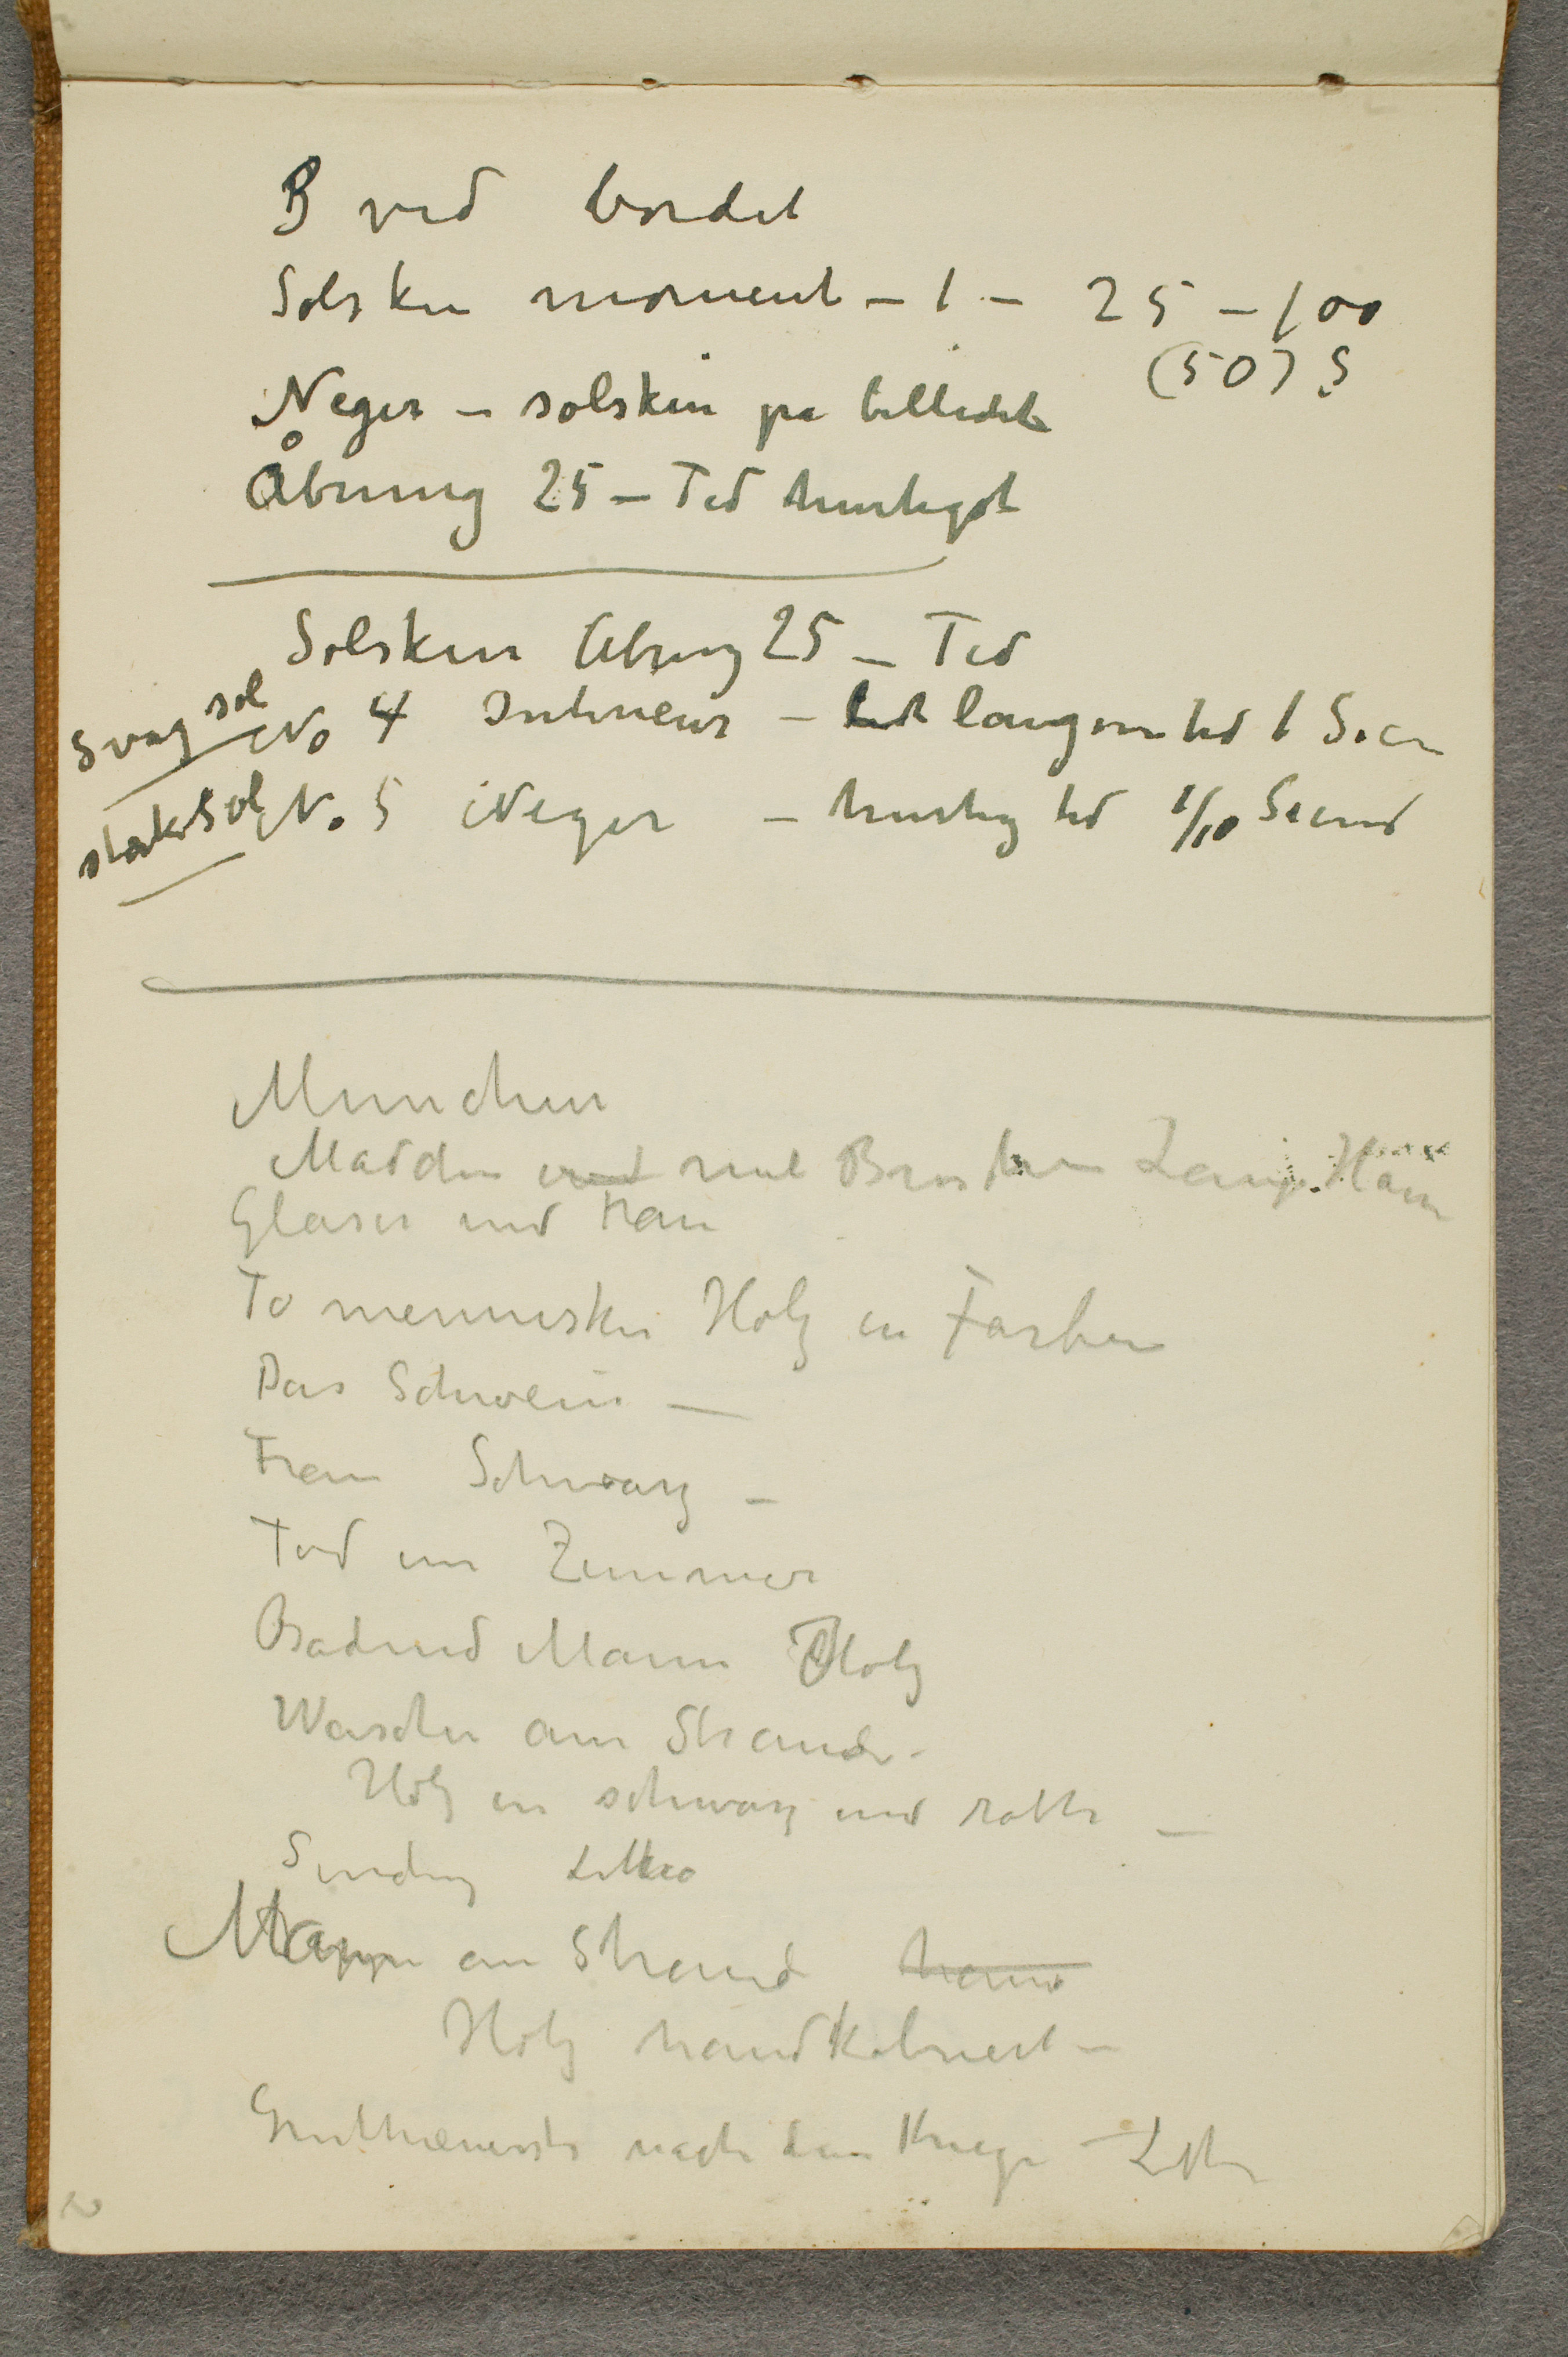 B ved bordet
Solskin moment – 1 – 25 – 100
(50) S
Neger – solskin på billedet
Åbning 25 – Tid hurtigst
Solskin Åbning 25 – Tid
Svag sol No 4 Interieur – langsom tid 1 Secu
stærk Sol No 5 Neger – hurtig tid 1/10 Secund
Munchen
Madchen und mit Brosche Lange Haar
Glaser und Frau
To mennesker Holz in Farben
Das Schwein —
Frau Schwarz –
Tod im Zimmer
Badend Mann Holz
Waschen am Strande –
Holz in schwarz und roth –
Sinding Litho
am Strand hand
Holz handkoloriert –
nach dem Kriege – Lith